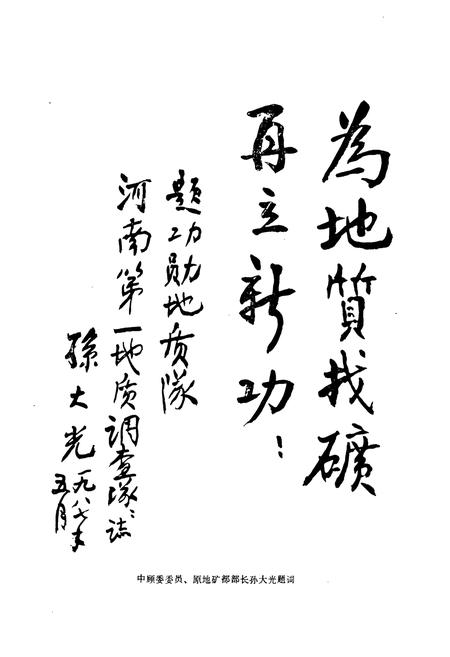 為地質找礦
再立新功！
题功勋地质队
河南第一地质调查队队誌
孫大光
一九八七年
五月
中顾委委员、原地矿部部长孙大光题词